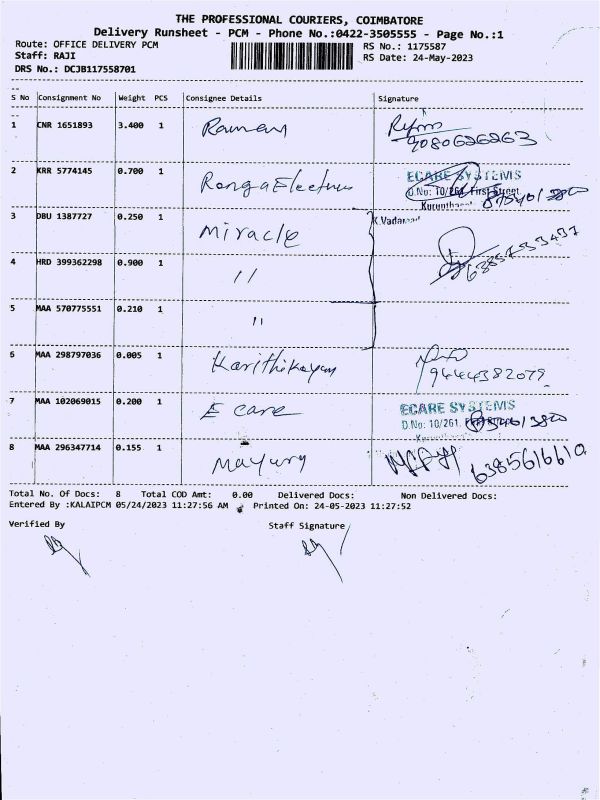 THE PROFESSIONAL COURIERS, COIMBATORE
Delivery Runsheet - PCM - Phone No.:0422-3505555 - Page No.:1
Route: OFFICE DELIVERY PCM RS No.: 1175587
Staff: RAJI RS Date: 24-May-2023
DRS No.: DCJB117558701
S No Consignment No Weight PCS Consignee Details Signature
1 CNR 1651893 3.400 1 Raman
9080626263
2 KRR 5774145 0.700 1 Ranga Electrus ECARE SYSTEMS
D.No: 10/261, First Street,
3 DBU 1387727 0.250 1 Miracle
4 HRD 399362298 0.900 1 //
5 MAA 570775551 0.210 1 11
6 MAA 298797036 0.005 1 Karithikayan
9444382079
7 MAA 102069015 0.200 1 E care ECARE SYSTEMS
D.No: 10/261,
8 MAA 296347714 0.155 1 Mayury 6385616610
Total No. Of Docs: 8 Total COD Amt: 0.00 Delivered Docs: Non Delivered Docs:
Entered By :KALAIPCM 05/24/2023 11:27:56 AM Printed On: 24-05-2023 11:27:52
Verified By Staff Signature